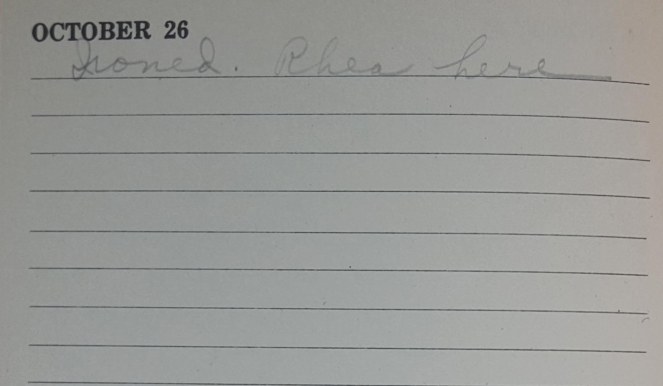 OCTOBER 26
Ironed. Rhea here